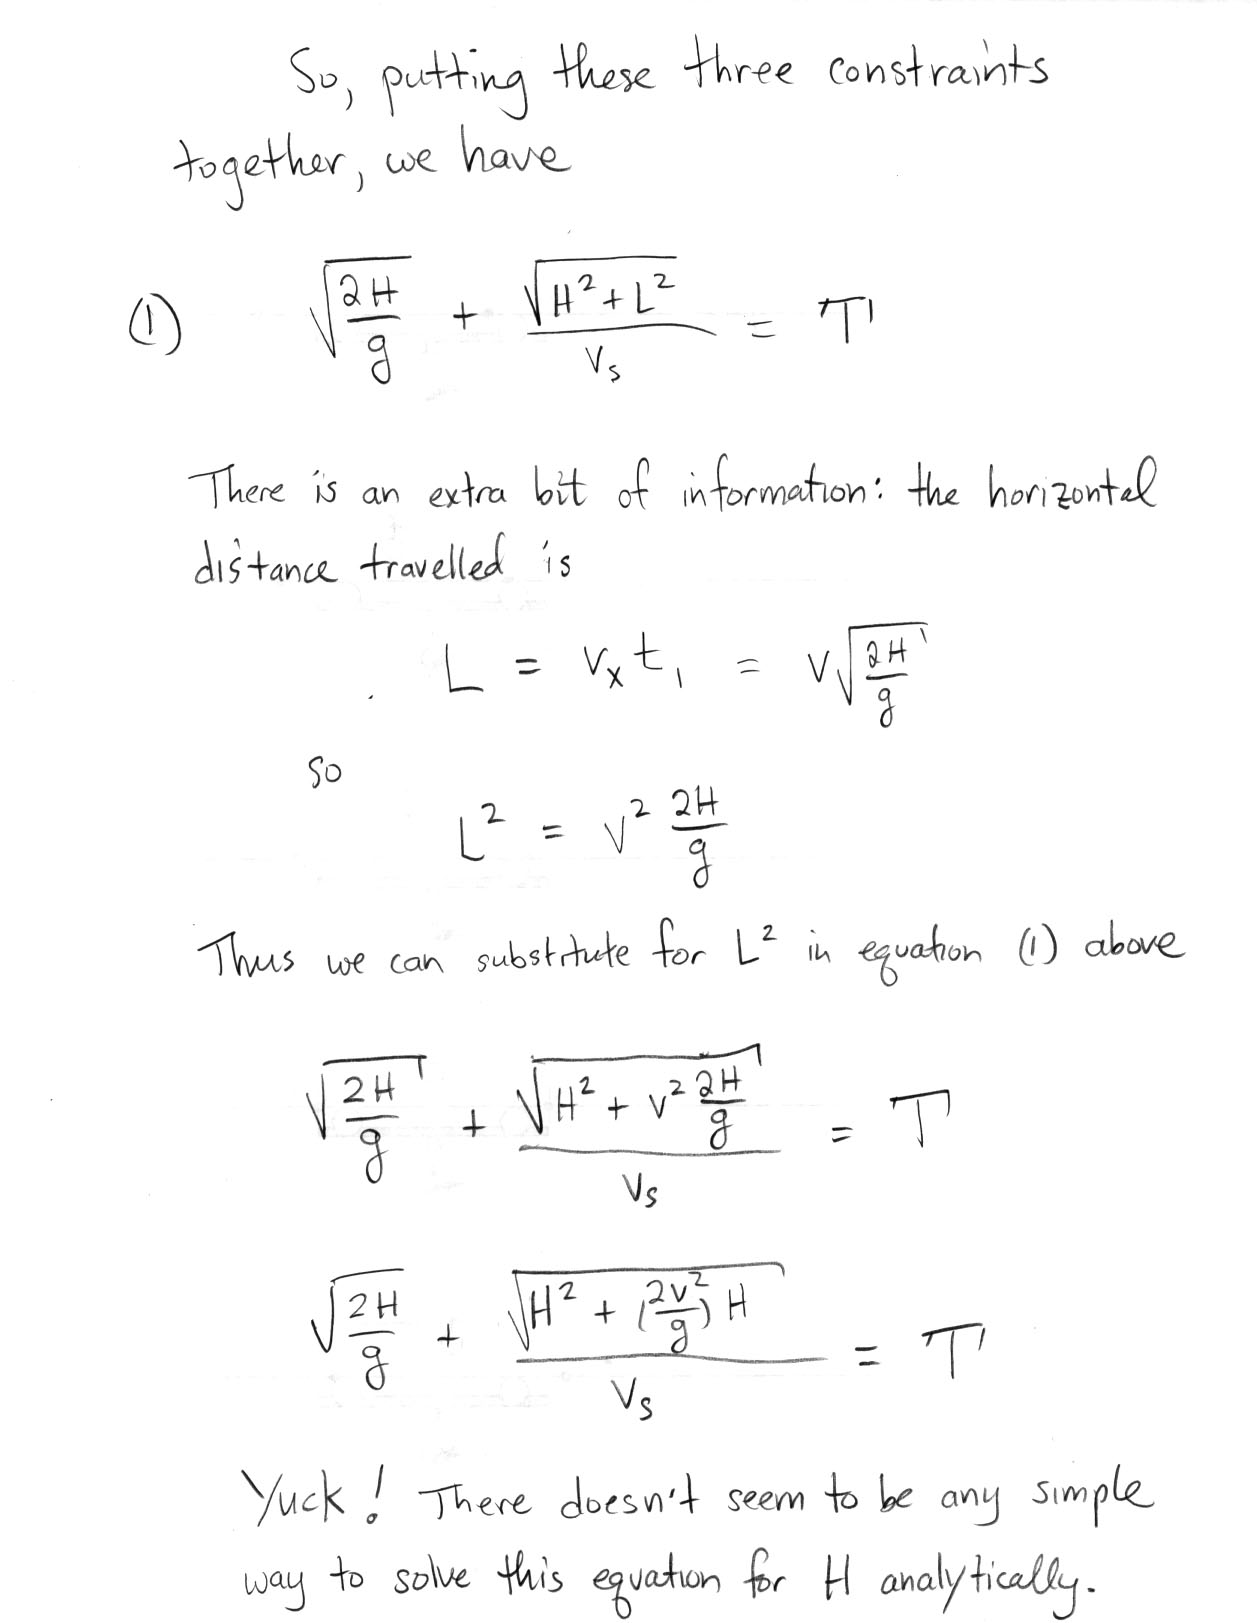 So, putting these three constraints
together, we have
(1) √(2H/g) + √(H² + L²)/Vs = T
There is an extra bit of information: the horizontal
distance travelled is
L = Vx t1 = V√(2H/g)
So
L² = V² 2H/g
Thus we can substitute for L² in equation (1) above
√(2H/g) + √(H² + V² 2H/g)/Vs = T
√(2H/g) + √(H² + (2V²/g) H)/Vs = T
Yuck! There doesn't seem to be any simple
way to solve this equation for H analytically.